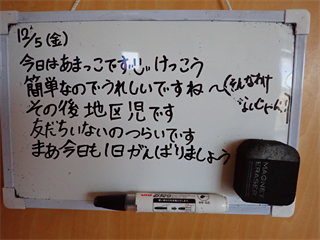 12/5(金)
今日はあまっこですじ けっこう
簡単なのでうれしいですね～(そんなわけ
ないじゃん!)
その後 地区児です
友だちいないのつらいです
まあ今日も1日がんばりましょう
MAGNET
ERASER